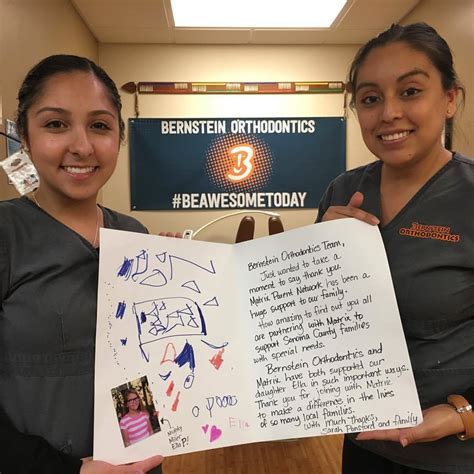 BERNSTEIN ORTHODONTICS
BERNSTEIN ORTHODONTICS
B
#BEAWESOMETODAY
BERNSTEIN
ORTHODONTICS
Bernstein Orthodontics Team,
Just wanted to take a
moment to say thank you.
Matrix Parent Network has been a
huge support to our family.
How amazing to find out you all
are partnering with Matrix to
support Sonoma County families
with special needs.
Bernstein Orthodontics and
Matrix have both supported our
daughter Ella in such important ways.
Thank you for joining with Matrix
to make a difference in the lives
of so many local families.
With Much Thanks,
Sarah Ponsford and family
Mighty
Miss
Ella P!